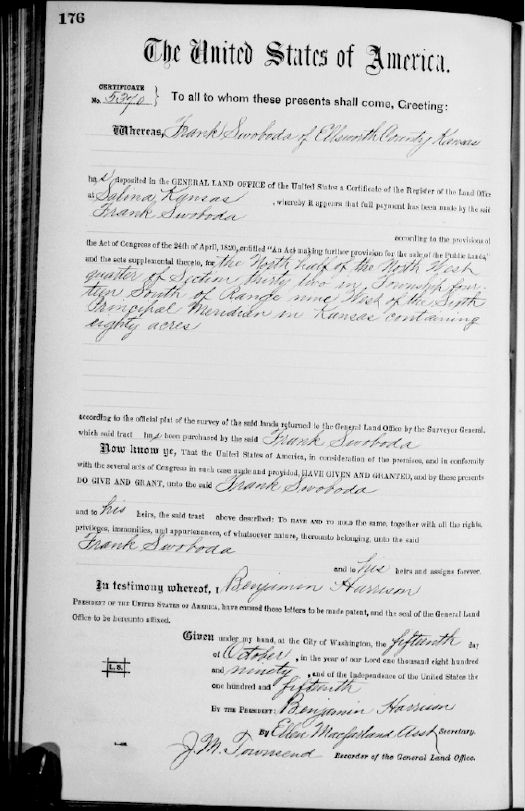 176
The United States of America.
CERTIFICATE
No. 5370 } To all to whom these presents shall come, Greeting:
Whereas, Frank Swoboda of Ellsworth County Kansas
has deposited in the GENERAL LAND OFFICE of the United States a Certificate of the Register of the Land Office
at Salina, Kansas , whereby it appears that full payment has been made by the said
Frank Swoboda
according to the provisions of
the Act of Congress of the 24th of April, 1820, entitled "An Act making further provision for the sale of the Public Lands,"
and the acts supplemental thereto, for the North half of the North West
quarter of Section thirty two in Township four-
teen South of Range nine West of the Sixth
Principal Meridian in Kansas containing
eighty acres
according to the official plat of the survey of the said lands returned to the General Land Office by the Surveyor General,
which said tract has been purchased by the said Frank Swoboda
Now know ye, That the United States of America, in consideration of the premises, and in conformity
with the several acts of Congress in such case made and provided, HAVE GIVEN AND GRANTED, and by these presents
DO GIVE AND GRANT, unto the said Frank Swoboda
and to his heirs, the said tract above described: TO HAVE AND TO HOLD the same, together with all the rights,
privileges, immunities, and appurtenances, of whatsoever nature, thereunto belonging, unto the said
Frank Swoboda
and to his heirs and assigns forever.
In testimony whereof, I Benjamin Harrison
PRESIDENT OF THE UNITED STATES OF AMERICA, have caused these letters to be made patent, and the seal of the General Land
Office to be hereunto affixed.
Given under my hand, at the City of Washington, the fifteenth day
of October , in the year of our Lord one thousand eight hundred
and ninety , and of the Independence of the United States the
one hundred and fifteenth
L.S.
BY THE PRESIDENT: Benjamin Harrison
By Ellen Macfarland Asst Secretary.
J. M. Townsend Recorder of the General Land Office.